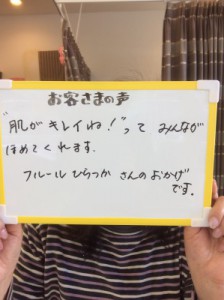 お客さまの声
"肌がキレイね！"って みんなが
ほめてくれます.
フルール ひらつか さんの おかげ
です.